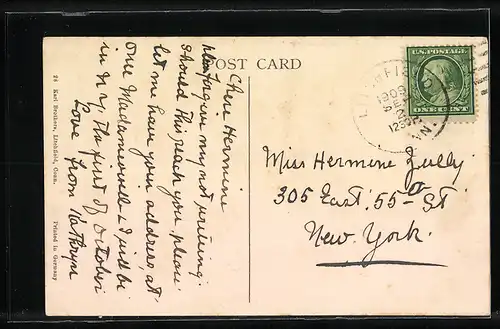 POST CARD
Cheri Hermine
forgive my not writing.
should this reach you please
let me have your address at
one Madameville I will be
in N Y the first of October
Love from Kathryn
24 Karl Brothers, Litchfield, Conn. Printed in Germany
U.S. POSTAGE
ONE CENT
1909
SEP
Miss Hermine Zully
305 East. 55- St
New. York.